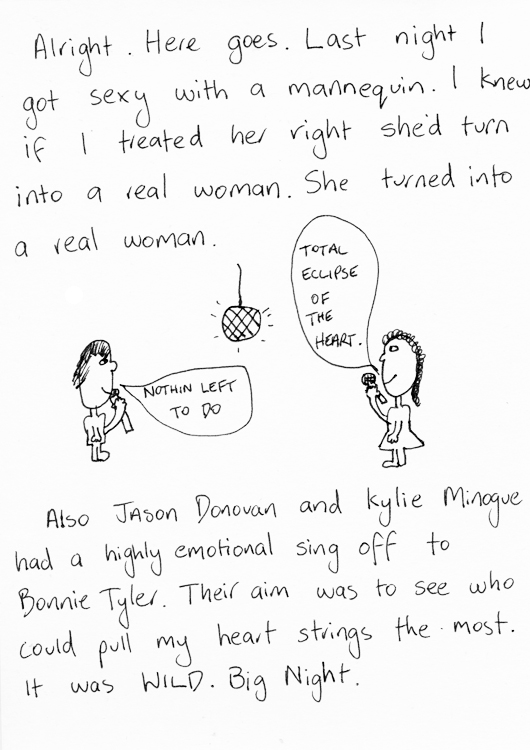 Alright. Here goes. Last night I
got sexy with a mannequin. I knew
if I treated her right she'd turn
into a real woman. She turned into
a real woman.
TOTAL
ECLIPSE
OF
THE
HEART.
NOTHIN LEFT
TO DO
Also JASON Donovan and Kylie Minogue
had a highly emotional sing off to
Bonnie Tyler. Their aim was to see who
could pull my heart strings the most.
It was WILD. Big Night.